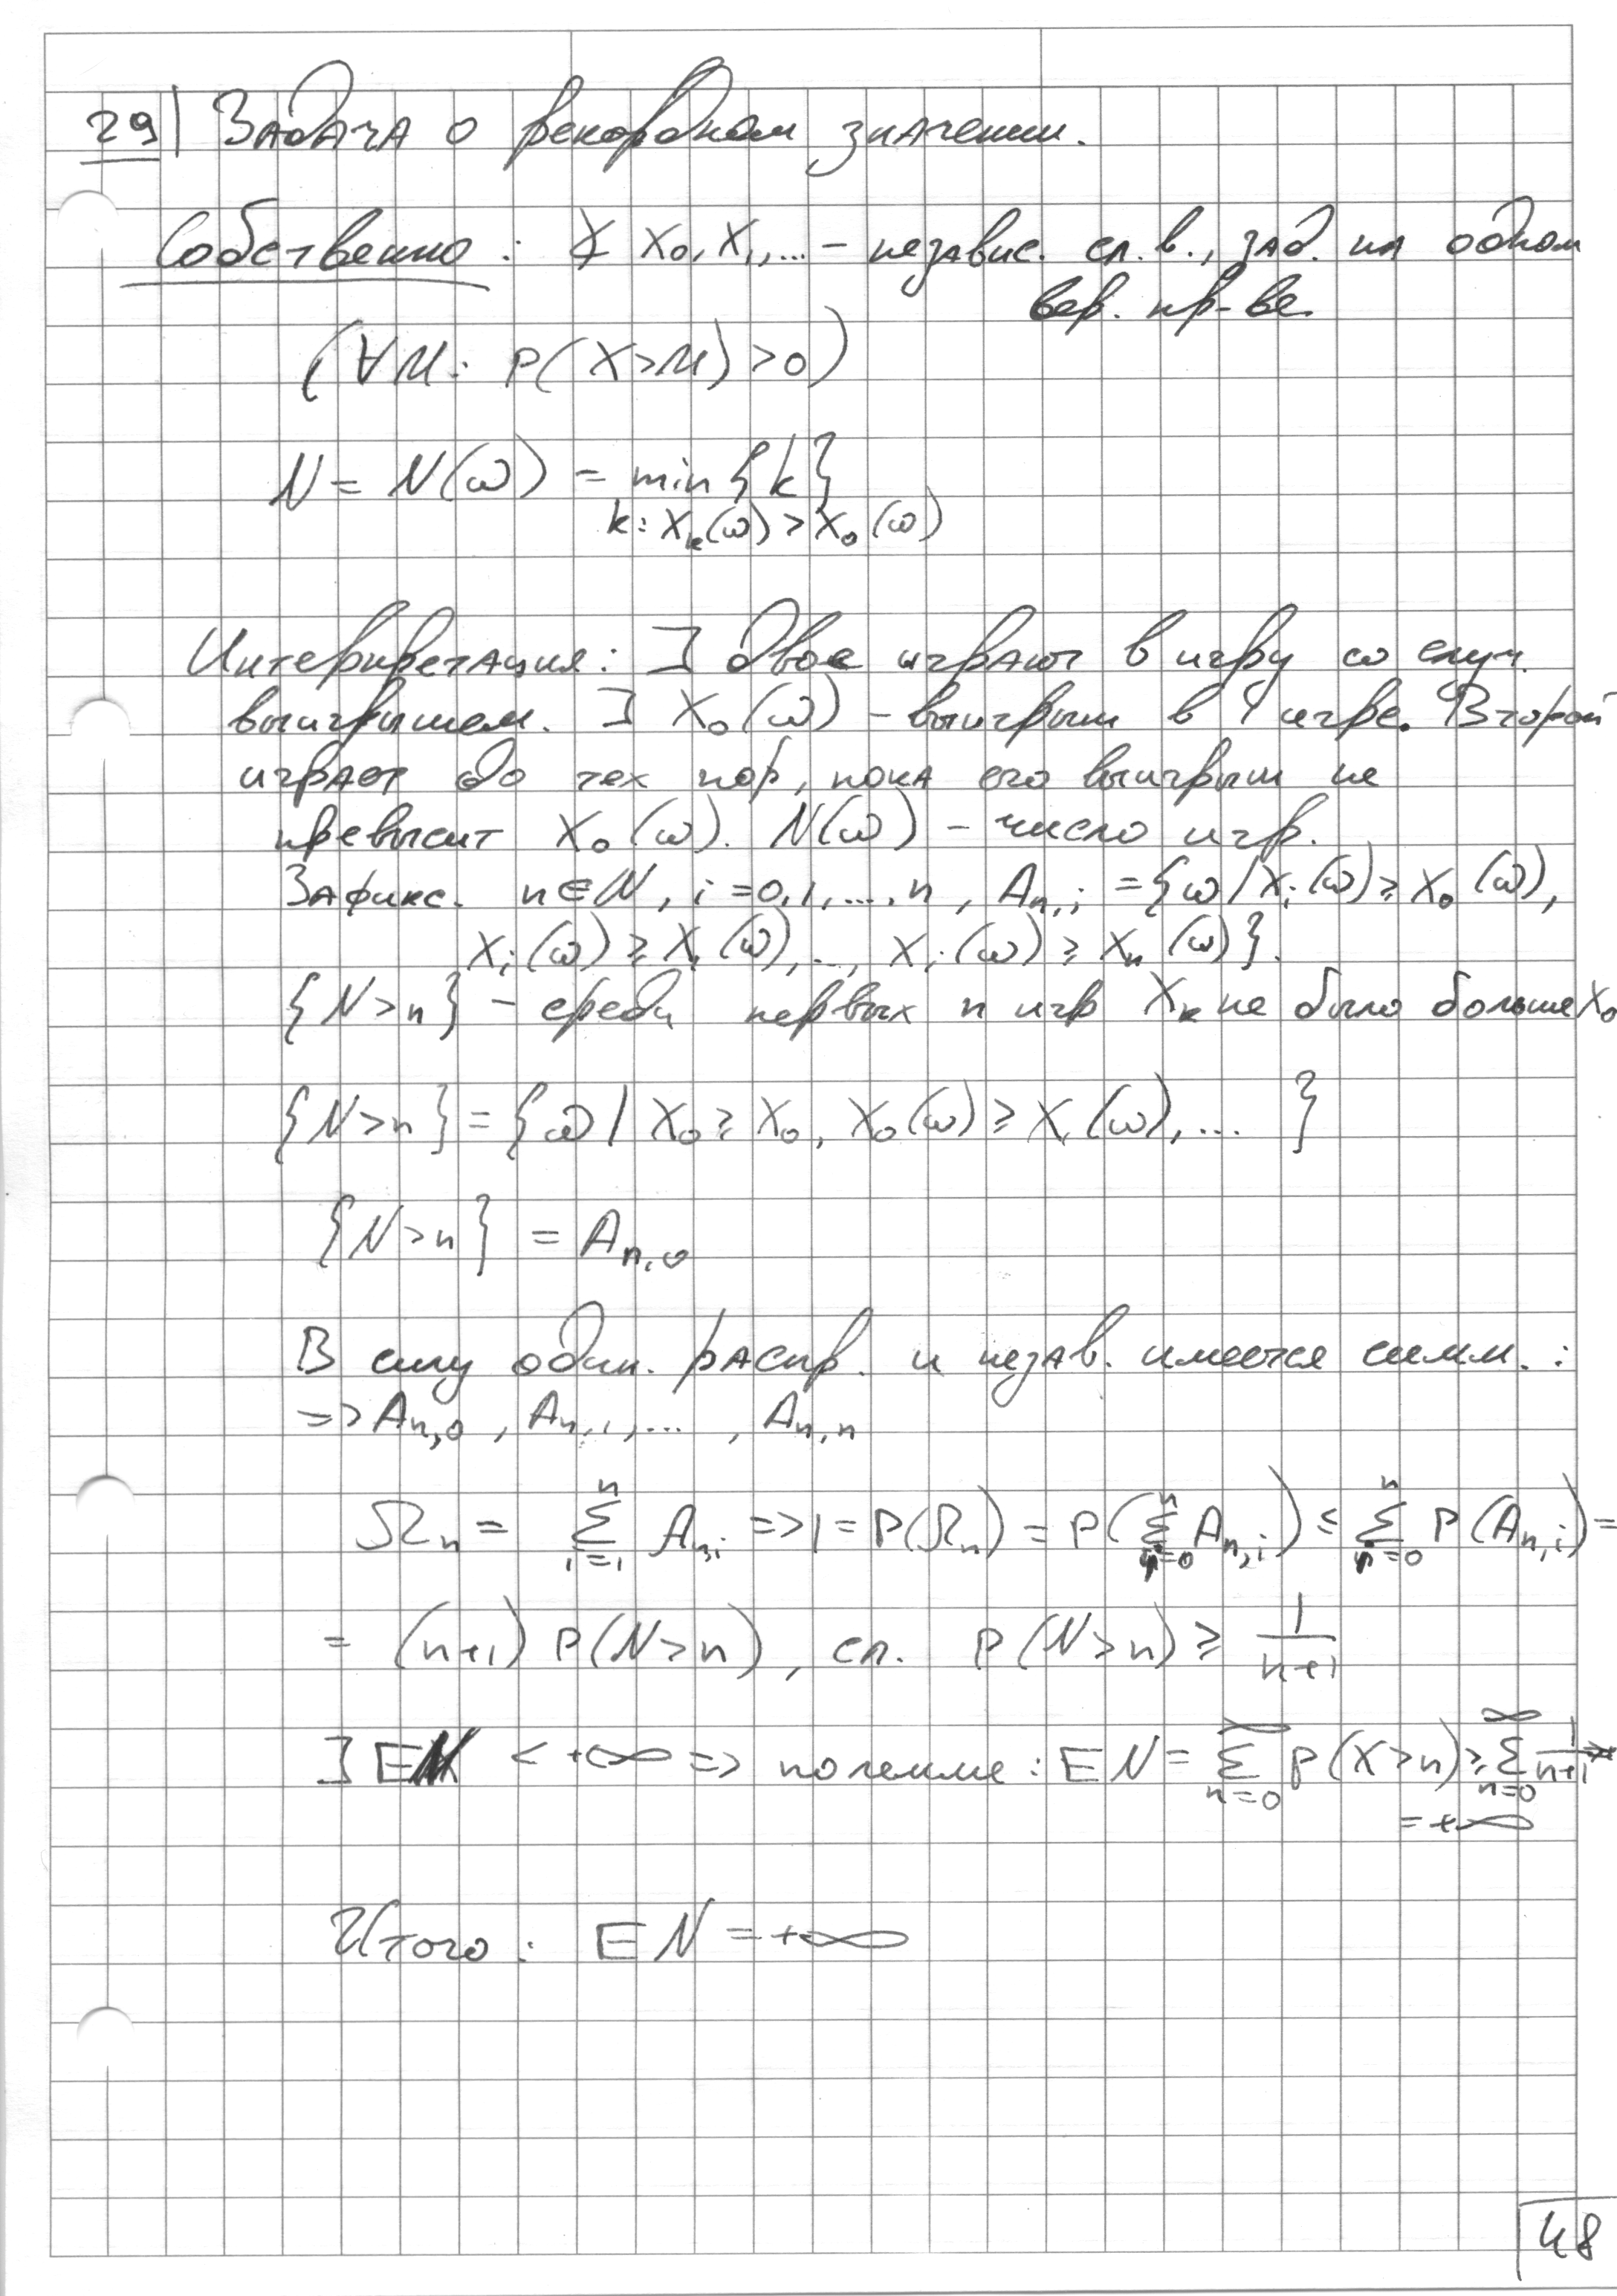 29| Задача о рекордном значении.
Собственно: ∢ X₀, X₁, ... - независ. сл. в., зад. на одном
вер. пр-ве.
(∀M: P(X>M) >0)
N = N(ω) = min {k}
k: Xₖ(ω) > X₀(ω)
Интерпретация: ] двое играют в игру со случ.
выигрышем. ] X₀(ω) - выигрыш в 1 игре. Второй
играет до тех пор, пока его выигрыш не
превысит X₀(ω). N(ω) - число игр.
Зафикс. n∈N, i=0,1,...,n, Aₙ,ᵢ = {ω / Xᵢ(ω) ≥ X₀(ω),
Xᵢ(ω) ≥ X₁(ω), ..., Xᵢ(ω) ≥ Xₙ(ω)}.
{N>n} - среди первых n игр Xₖ не было больше X₀
{N>n} = {ω / X₀ ≥ X₀, X₀(ω) ≥ X₁(ω), ... }
{N>n} = Aₙ,₀
В силу один. распр. и незав. имеется симм. :
=> Aₙ,₀, Aₙ,₁, ..., Aₙ,ₙ
Ωₙ = Σⁿᵢ₌₁ Aₙ,ᵢ => 1 = P(Ωₙ) = P(Σⁿᵢ₌₀ Aₙ,ᵢ) ≤ Σⁿᵢ₌₀ P(Aₙ,ᵢ) =
= (n+1) P(N>n), сл. P(N>n) ≥ 1/(n+1)
] EN < +∞ => по лемме: EN = Σ^∞ₙ₌₀ P(X>n) ≥ Σ^∞ₙ₌₀ 1/(n+1) =
= +∞
Итого: EN = +∞
48